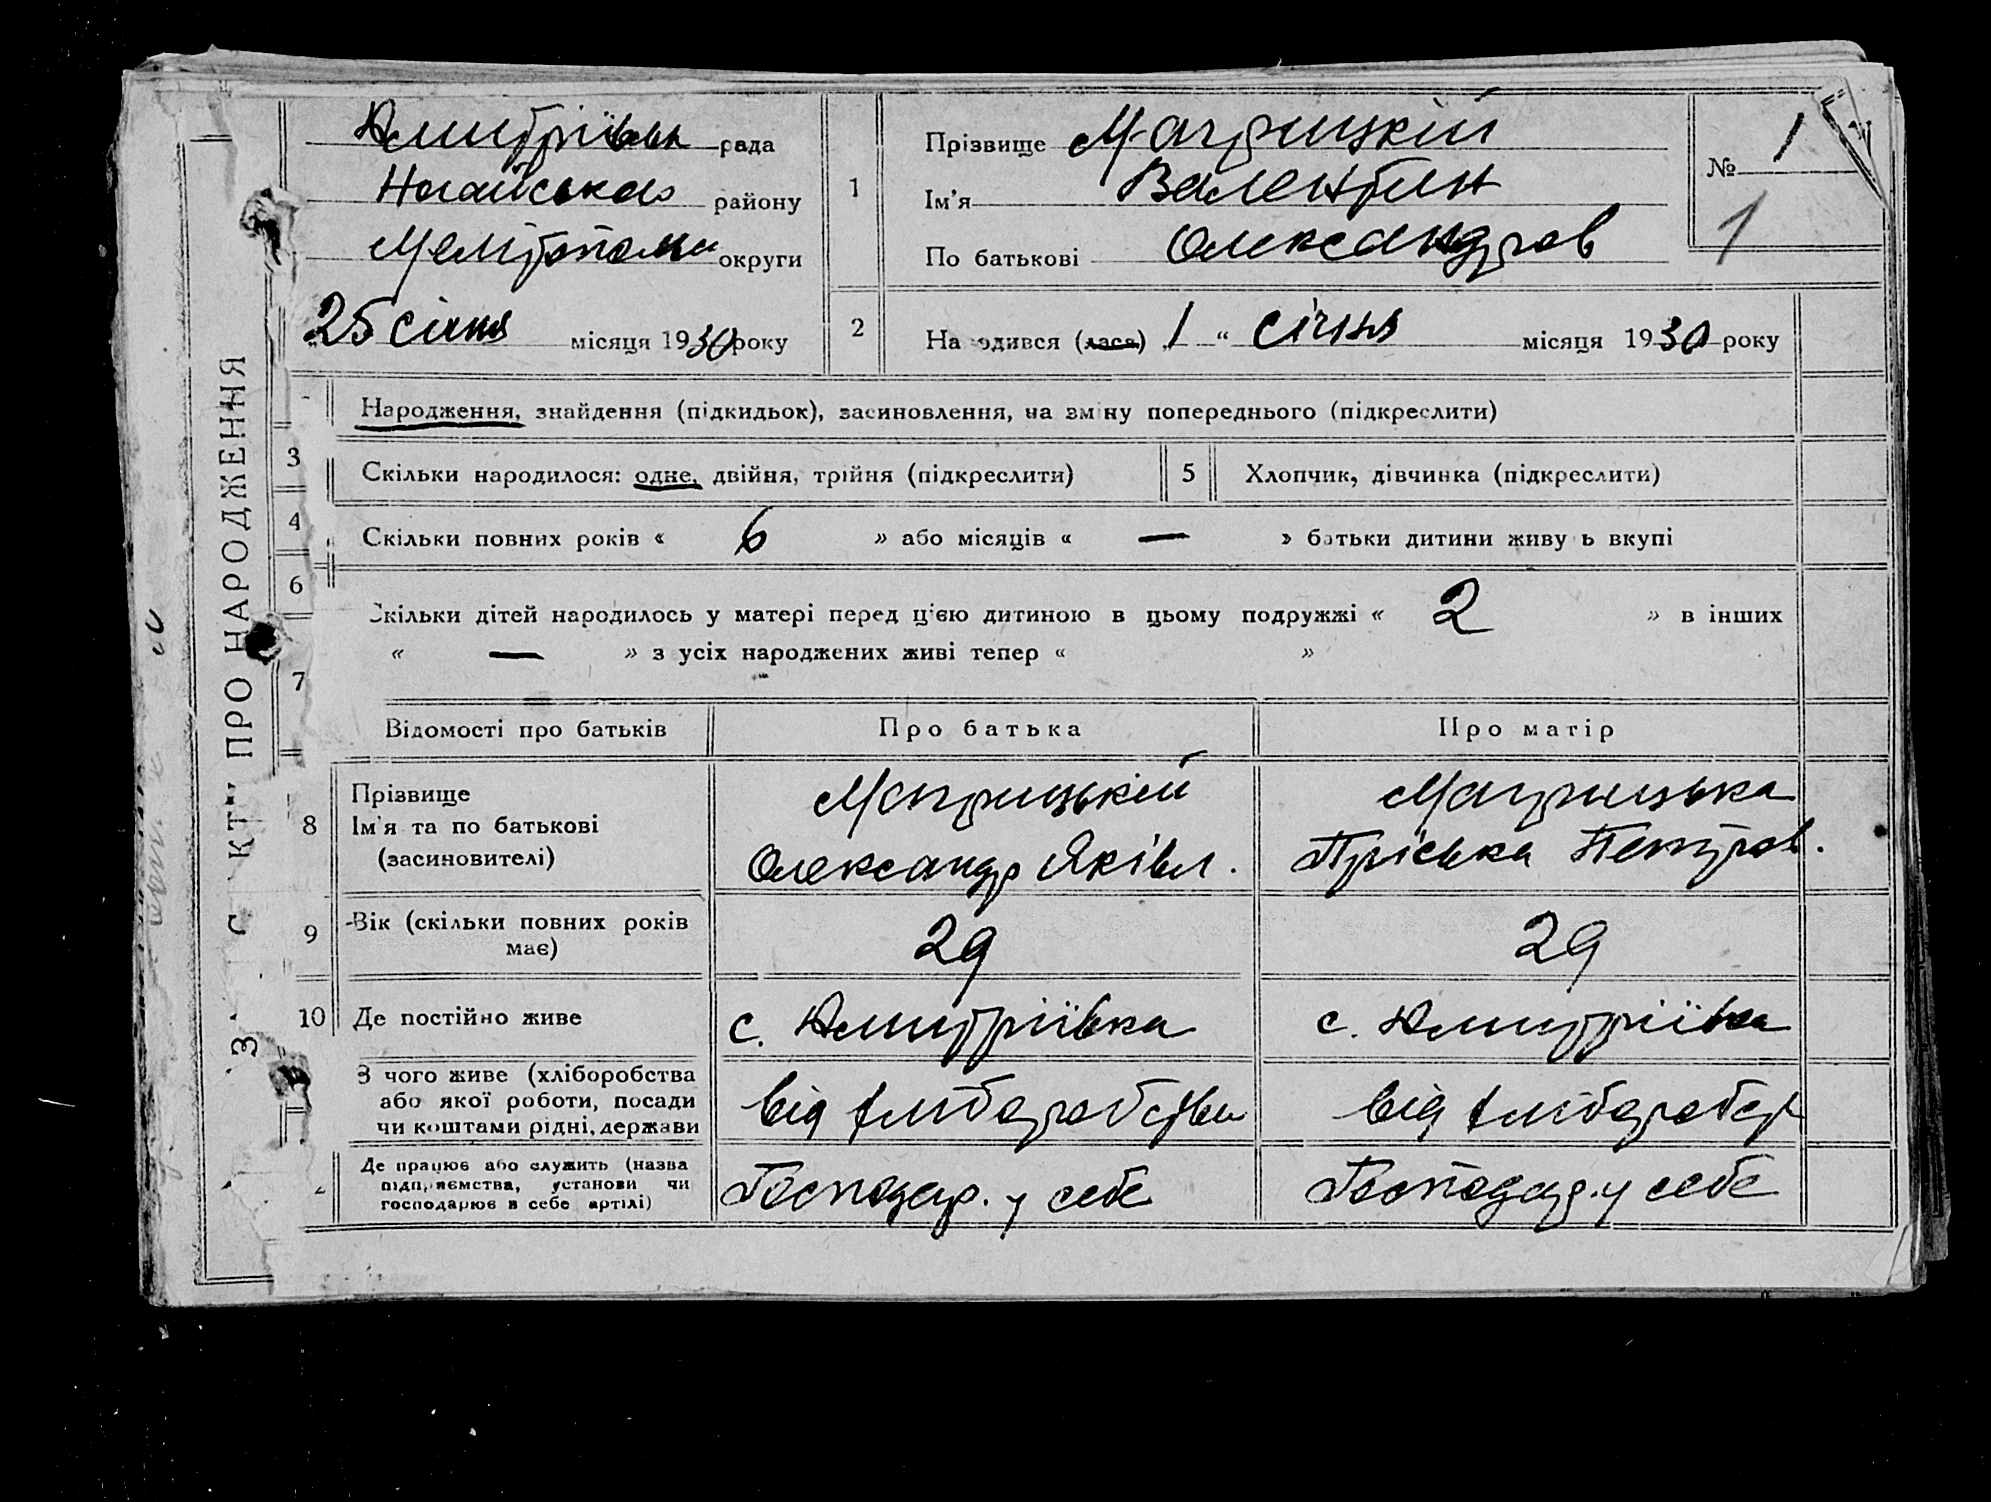 ПРО НАРОДЖЕННЯ
Дмитріївськ рада
Ногайського району
Мелітопольск округи
25 січня місяця 1930 року
1
Прізвище
Ім'я Валентин
По батькові Олександров
№ 1
1
2
Народився (лася) 1 " січня місяця 1930 року
Народження, знайдення (підкидьок), засиновлення, на зміну попереднього (підкреслити)
3
Скільки народилося: одне, двійня, трійня (підкреслити)
5
Хлопчик, дівчинка (підкреслити)
4
Скільки повних років « 6 » або місяців « — » батьки дитини живуть вкупі
6
Скільки дітей народилось у матері перед цією дитиною в цьому подружжі « 2 » в інших
« — » з усіх народжених живі тепер « »
7
Відомості про батьків
Про батька
Про матір
8
Прізвище
Ім'я та по батькові
(засиновителі)
Олександр Яківл.
Пріська Петров.
9
Вік (скільки повних років
має)
29
29
10
Де постійно живе
с. Дмитріївка
с. Дмитріївка
З чого живе (хліборобства
або якої роботи, посади
чи коштами рідні, держави
від хліборобства
від хліборобст
Де працює або служить (назва
підприємства, установи чи
господарює в себе артілі)
Господар. у себе
Господар. у себе